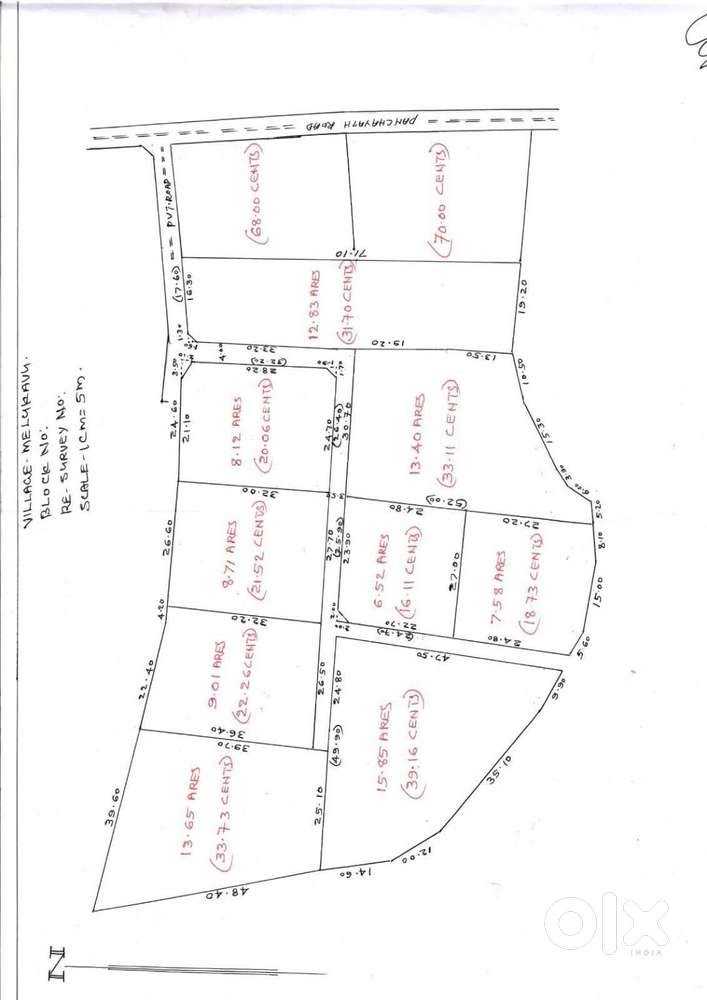 VILLAGE- MELUKAVU.
BLOCK NO:
RE-SURVEY NO:
SCALE-1CM=5M.
N
PANCHAYATH ROAD
PVT-ROAD
(68.00 CENTS)
(70.00 CENTS)
71.10
(17.60)
16.30
1.30
12.83 ARES
(31.70 CENTS)
19.20
33.20
19.20
13.50
4.00
3.50
24.60
21.10
8.12 ARES
(20.06 CENTS)
1.70
24.70
(26.40)
30.70
13.40 ARES
(33.11 CENTS)
10.50
15.30
3.90
6.00
5.20
32.00
26.60
8.71 ARES
(21.52 CENTS)
27.70
(25.90)
23.90
24.80
(52.00)
27.20
6.52 ARES
(16.11 CENTS)
27.00
7.58 ARES
(18.73 CENTS)
8.10
15.00
5.60
2.00
22.70
(24.70)
24.80
4.20
32.20
22.40
9.01 ARES
(22.26 CENTS)
26.50
24.80
47.50
9.90
36.40
39.70
(49.90)
15.85 ARES
(39.16 CENTS)
35.10
39.60
13.65 ARES
(33.73 CENTS)
25.10
12.00
14.60
48.40
olx
INDIA